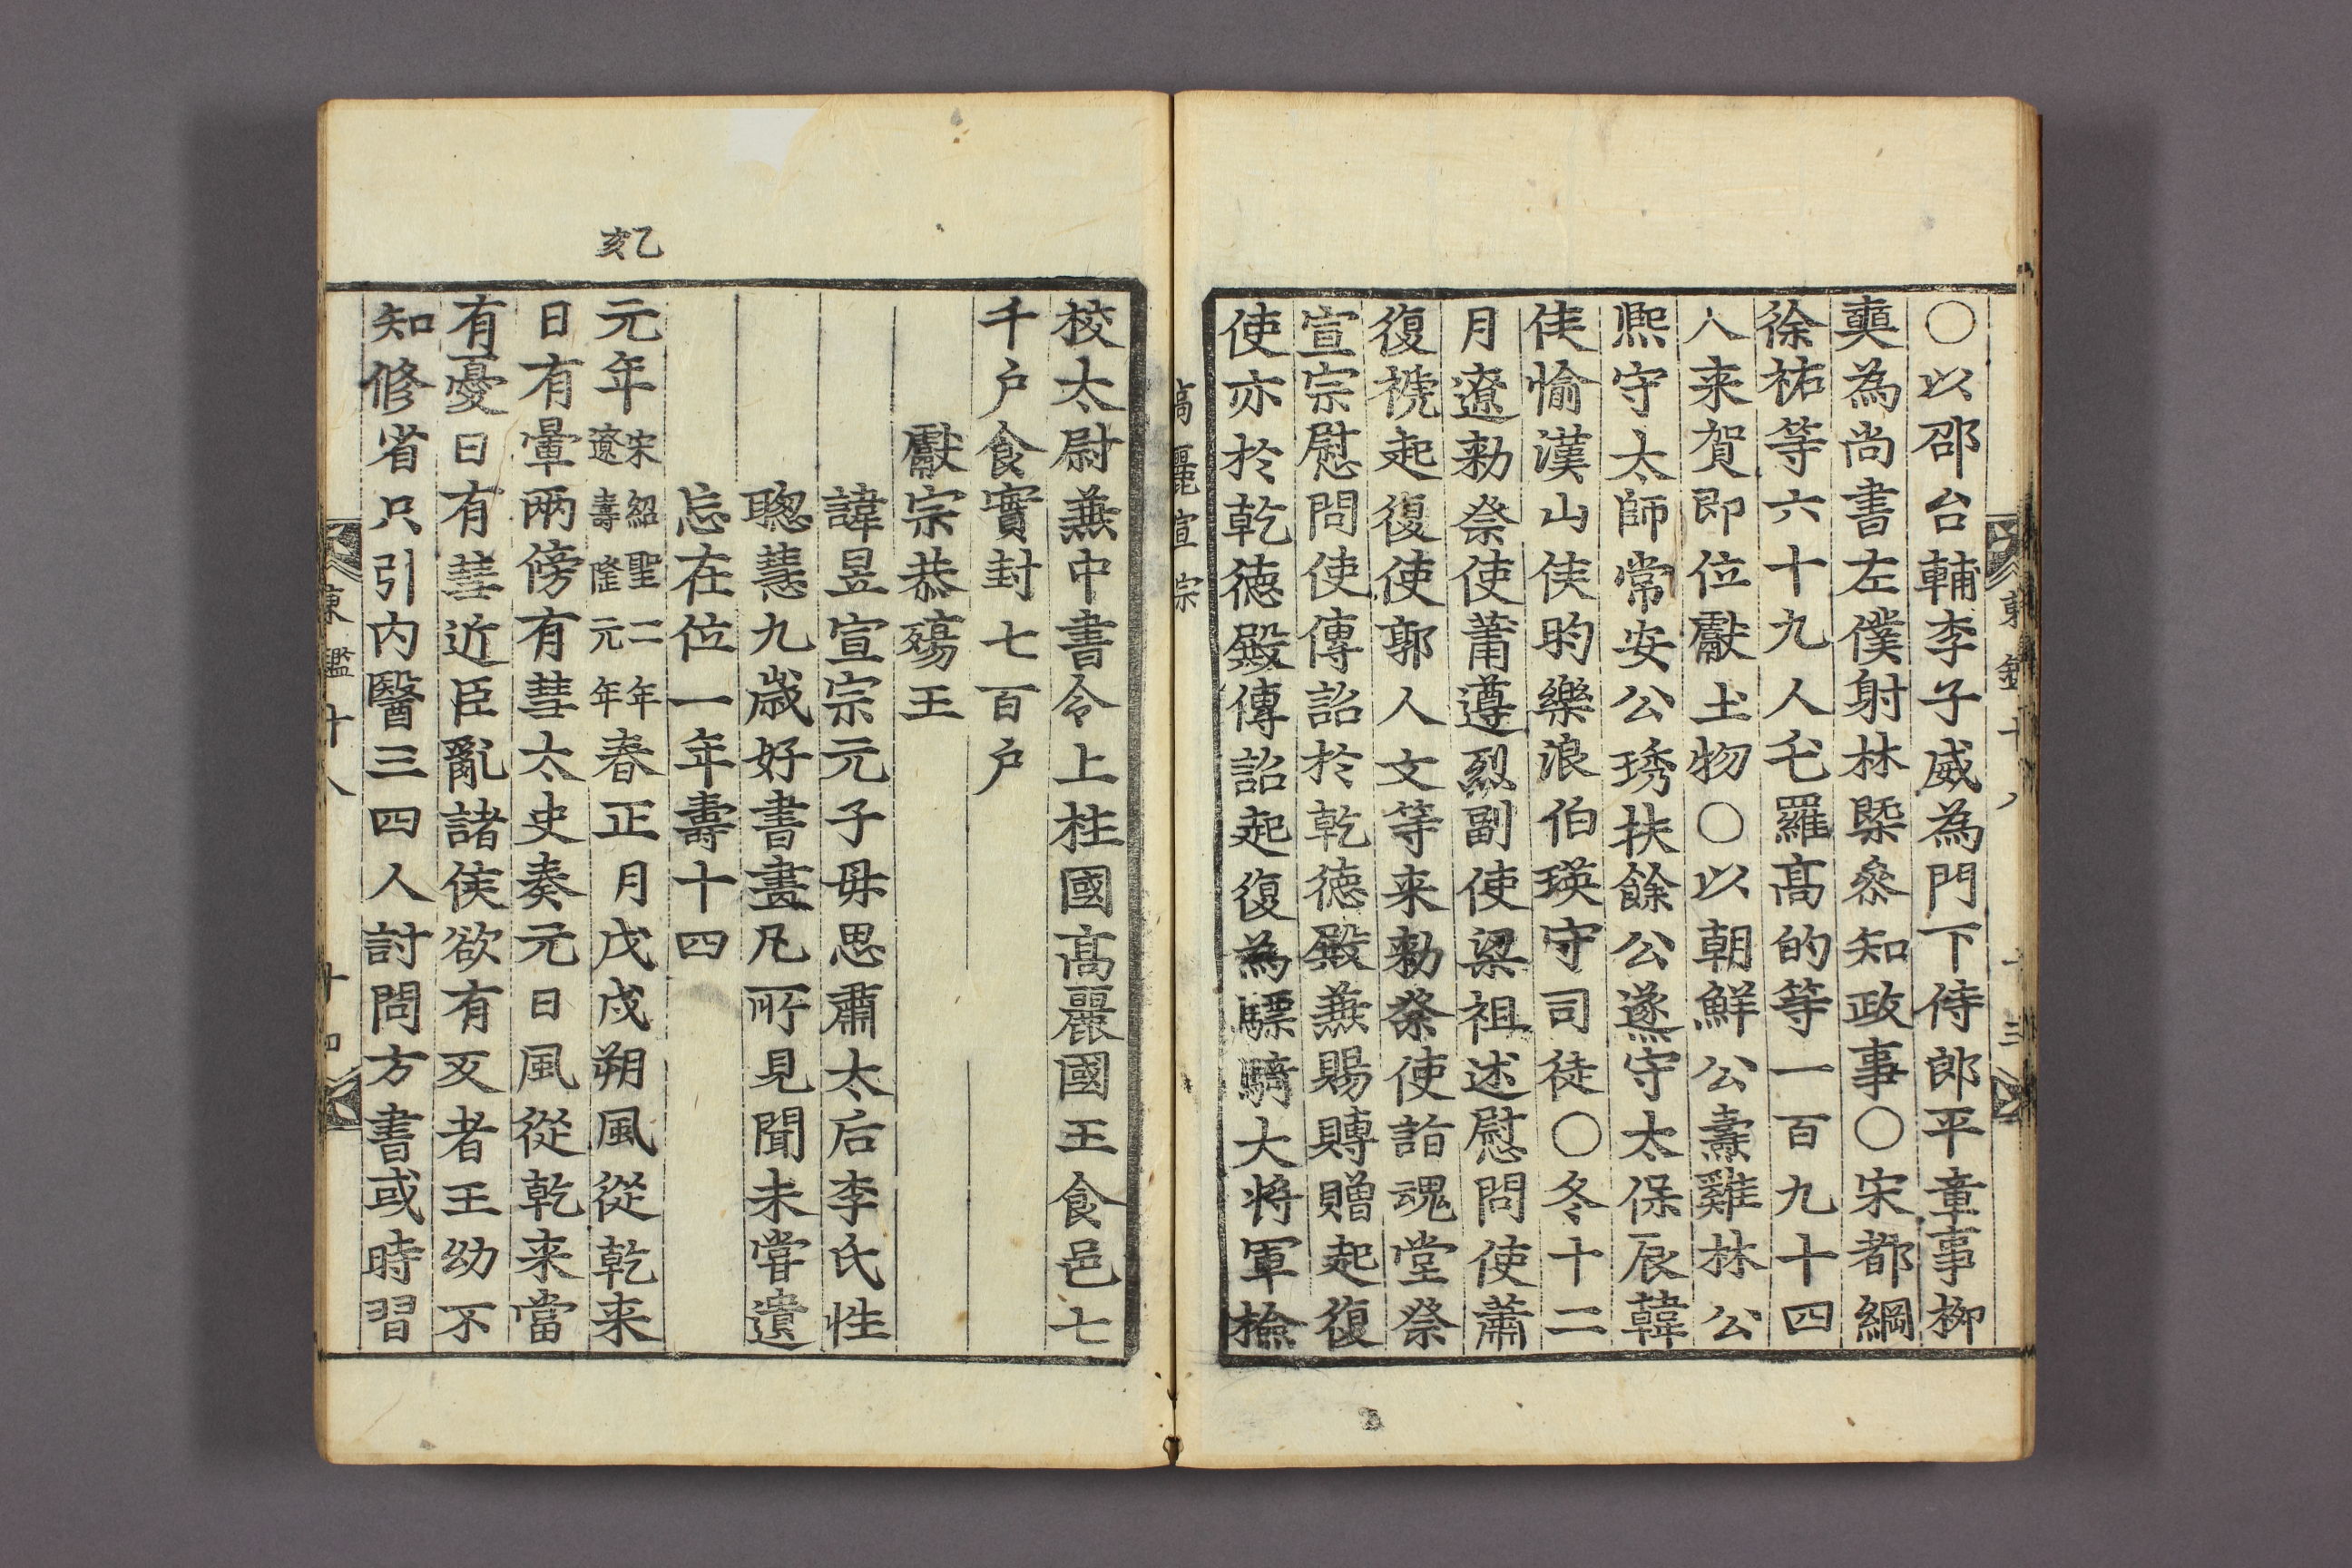 〇以邵台輔李子威為門下侍郎平章事柳
奭為尚書左僕射林槩叅知政事〇宋都綱
徐祐等六十九人乇羅高的等一百九十四
人来賀即位獻土物〇以朝鮮公燾雞林公
熈守太師常安公琇扶餘公㸂守太保辰韓
侯愉漢山侯昀樂浪伯瑛守司徒〇冬十二
月遼勑祭使蕭遵烈副使梁祖述慰問使蕭
復禠起復使郭人文等来勑祭使詣魂堂祭
宣宗慰問使傳詔於乾德殿兼賜賻贈起復
使亦於乾德殿傳詔起復為驃騎大將軍檢
高麗宣宗
校太尉兼中書令上柱國高麗國王食邑七
千户食實封七百户
獻宗恭殤王
諱昱宣宗元子母思肅太后李氏性
聦慧九歲好書畫凡所見聞未嘗遺
忘在位一年壽十四
乙亥
元年宋紹聖二年遼壽隆元年春正月戊戌朔風從乾来
日有暈兩傍有彗太史奏元日風從乾来當
有憂日有彗近臣亂諸侯欲有叉者王幼不
知修省只引内醫三四人討問方書或時習
東鑑十八
十四